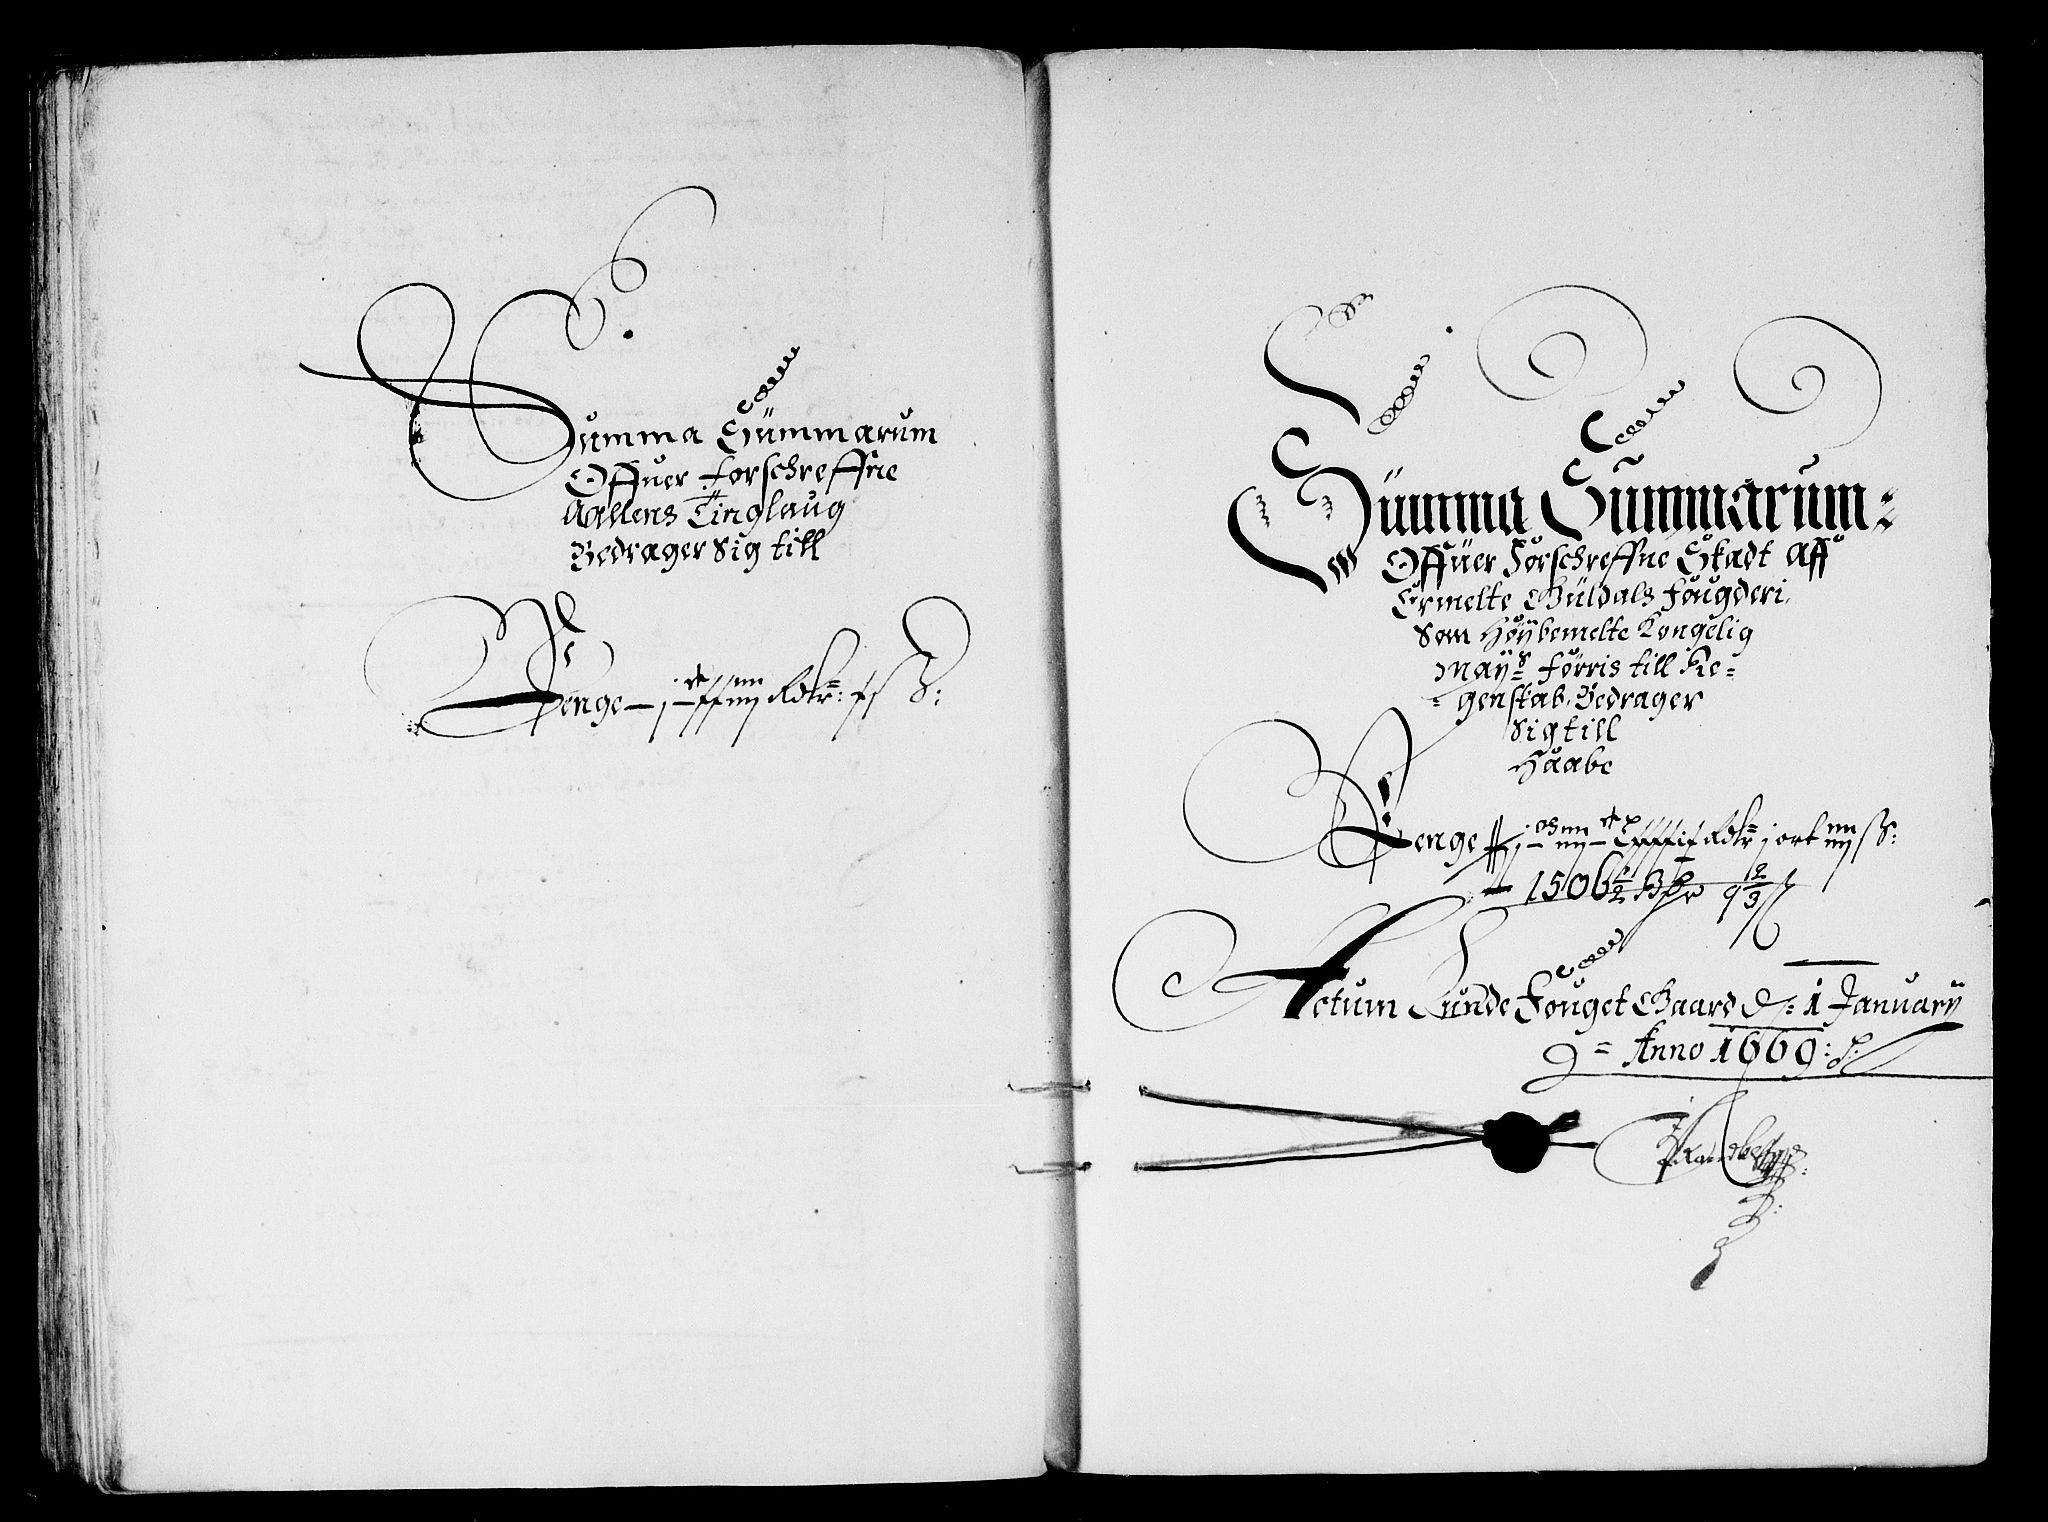 Summa Summarum
Offuer forschreffne
Aallens Tinglaug
Bedrager Sig till
Penge
Rdlr: ß:
Summa Summarum
Offuer Forschreffne Skadt Aff
Ermelte Guldals fougderi
Som Höybemelte Kongelig
Mayß förris till Re-
genskab, Bedrager
Sig till
Haabe
Penge Rdlr j ort ß:
1506½ 9⅔ ß
Actum Lunde Fouget Gaard D: 1 January
Anno 1669: